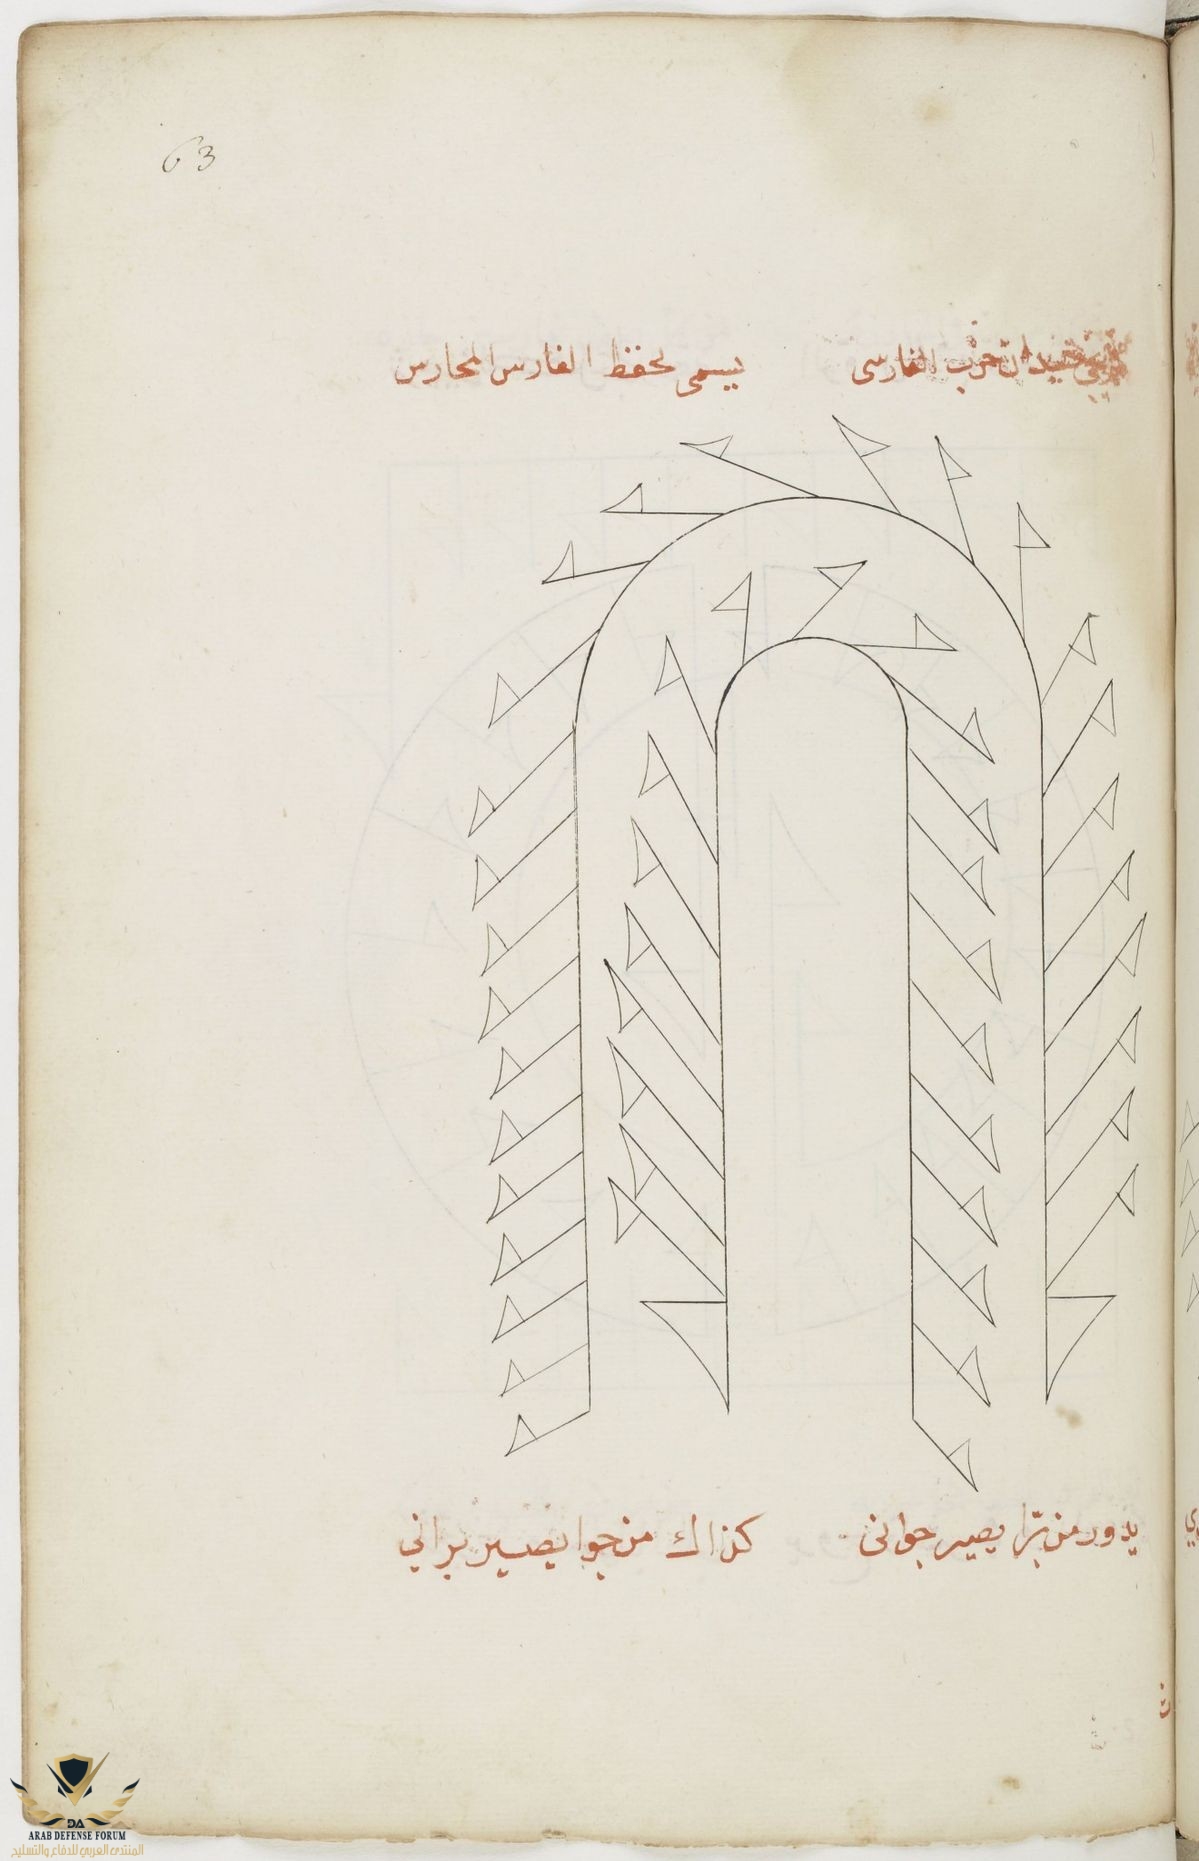 63
ميدان حرب الفارسى يسمى لحفظ الفارس المحارس
يدور من برّا يصير جوانى كذاك من جوا يصير برانى
DA
ARAB DEFENSE FORUM
المنتدى العربي للدفاع والتسليح